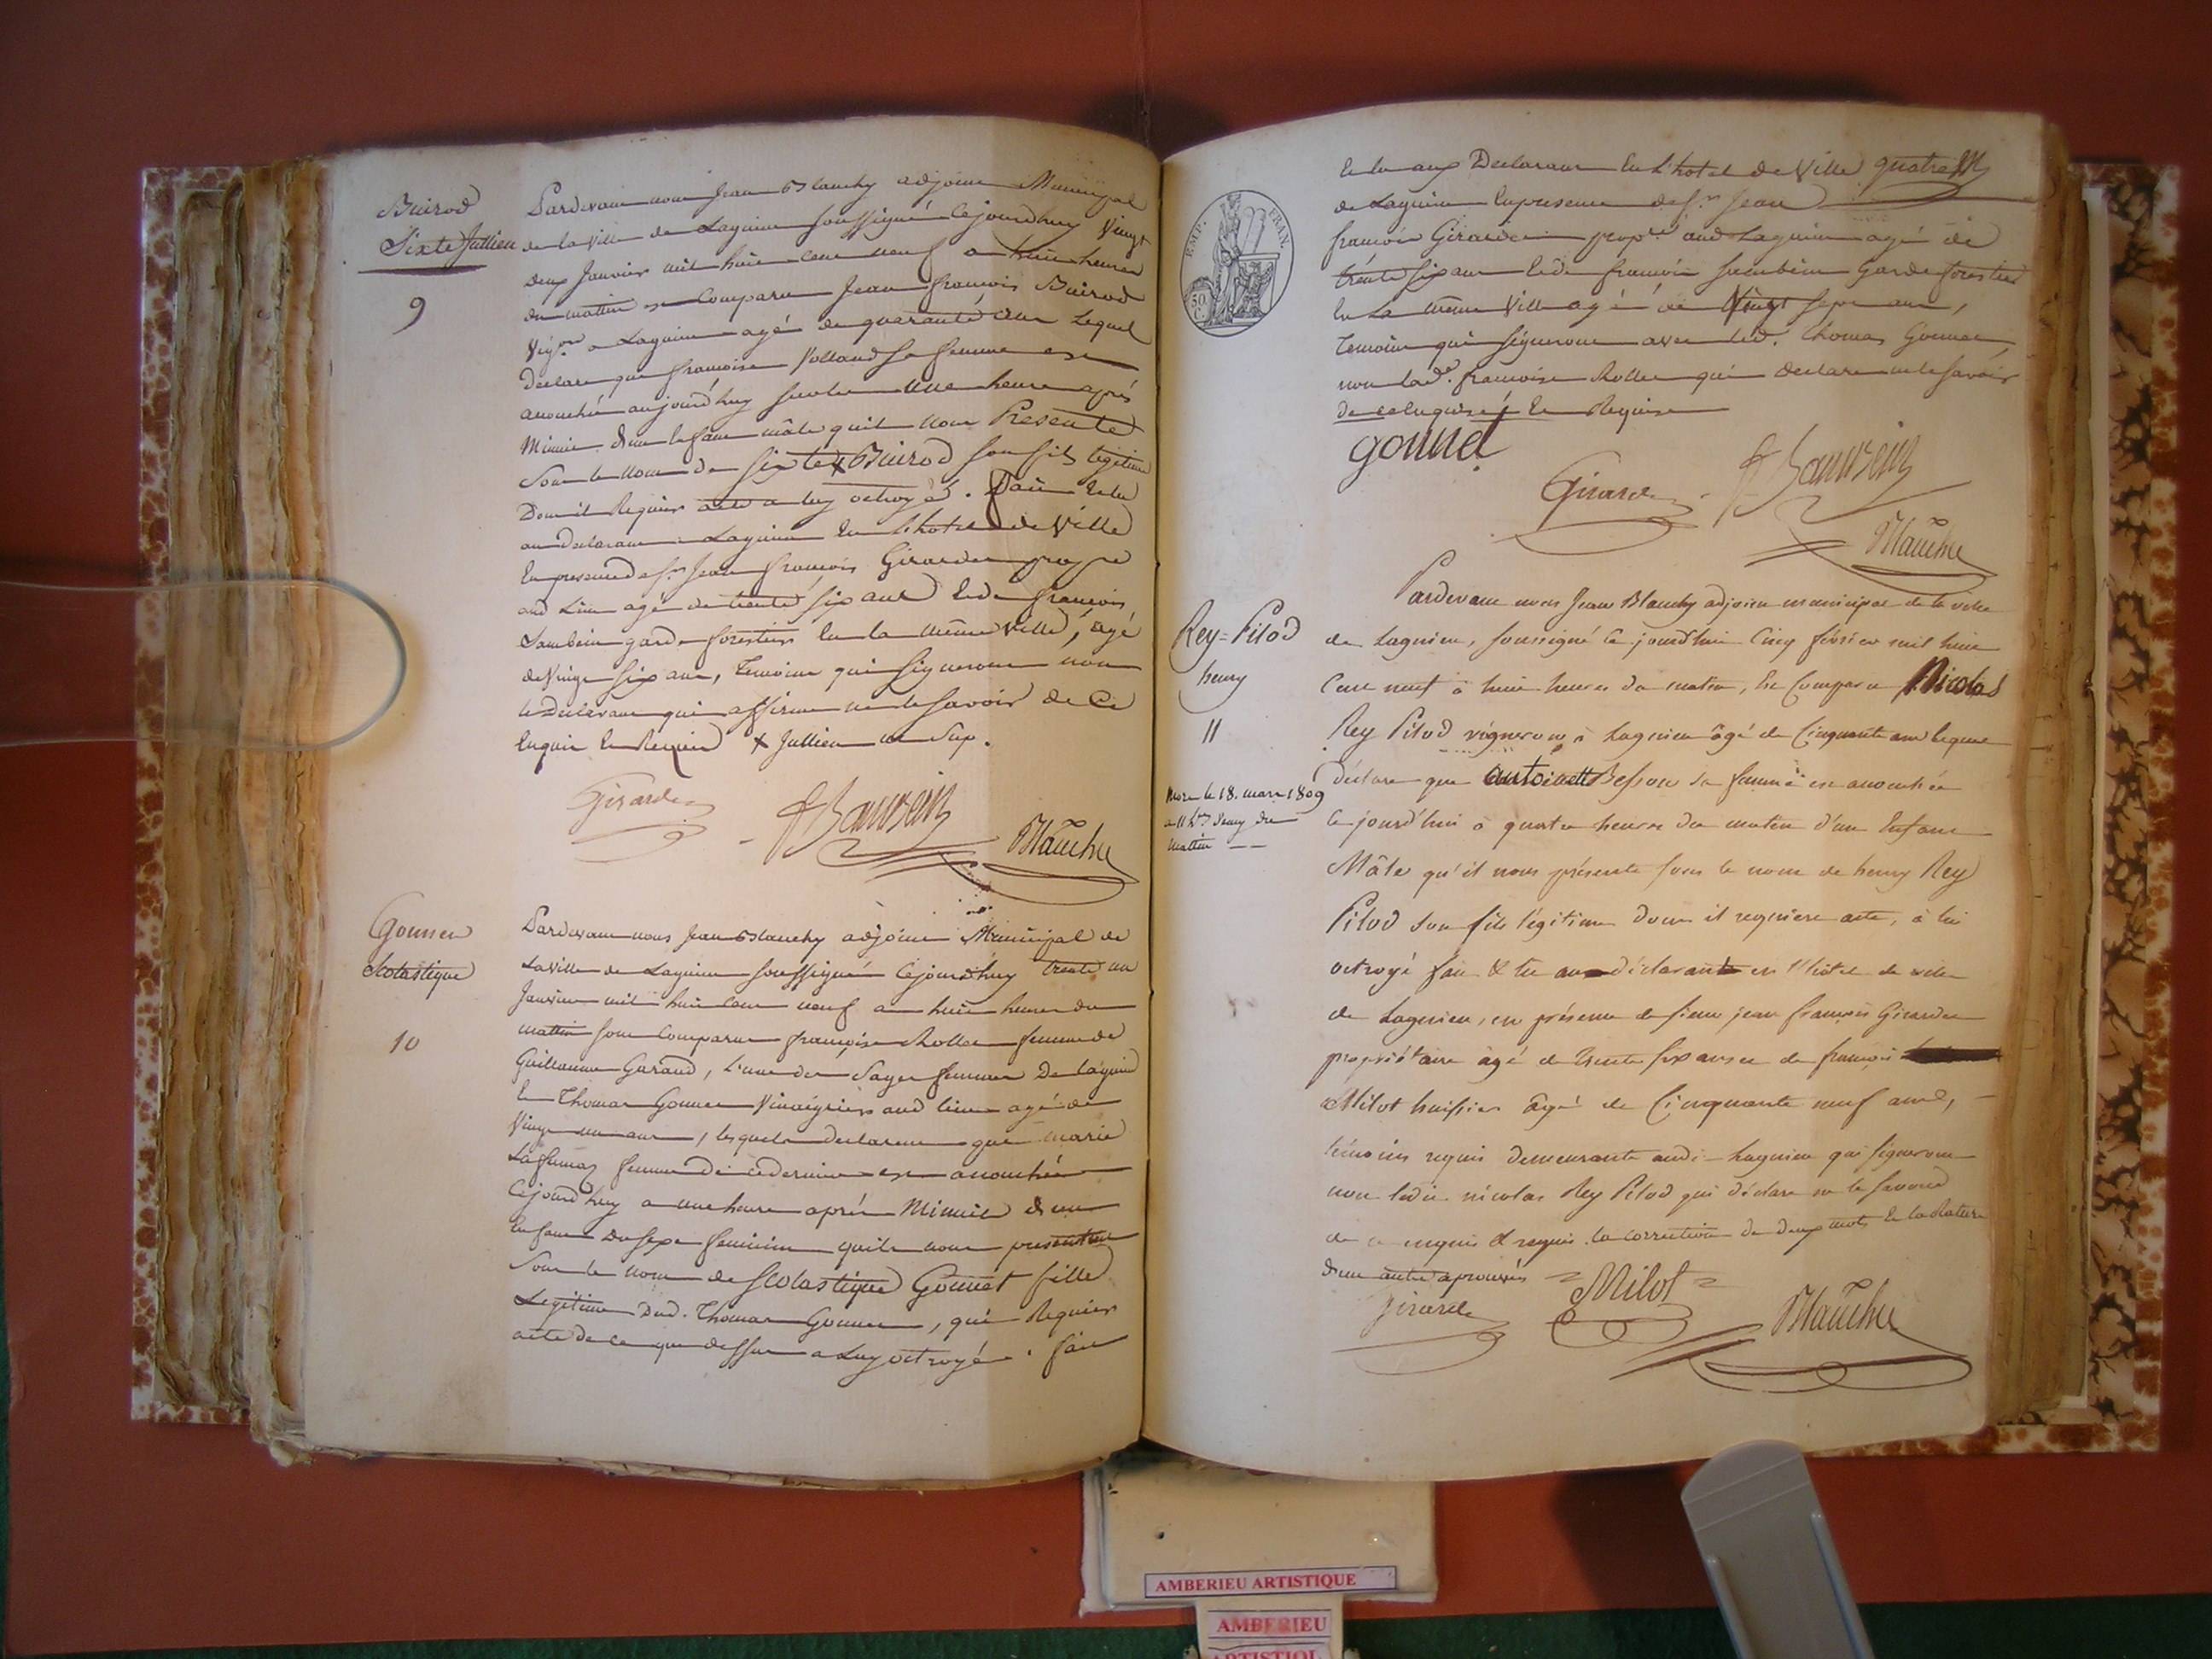 Buirod
Sixte Jullien
9
Pardevant nous Jean Blanchy adjoint Municipal
de la ville de Lagnieu soussigné Cejourdhuy Vingt
deux Janvier mil huit cent neuf a huit heures
du mattin est Comparu Jean francois Buirod
Vig.on a Lagnieu agé de quarante ans Lequel
Declare que francoise Volland sa femme est
accouchée aujourd'huy une heure après
Minuit d'un Enfant mâle quil nous Présente
Sous le nom de Sixte x Buirod son fils legitime
Dont il Requier acte a luy octroyé. Fait Et lu
au Declarant a Lagnieu En L'hotel de Ville
En presence de S.r Jean francois Girardet prop.re
aud Lieu agé de trente six ans Et de francois
garde forestier En la même ville, agé
de Vingt six ans, Temoins qui signeront non
le Declarant qui affirme ne le savoir de Ce
Enquis Et Requis x Jullien
Girardet
Blanchy
Gonnet
Scolastique
10
Pardevant nous Jean Blanchy adjoint Municipal de
La ville de Lagnieu soussigné Cejourdhuy trente un
Janvier mil huit cent neuf a huit heures du
mattin sont Comparus françoise Rollet femme de
Guillaume Garand, L'une des Sages femmes De Lagnieu
Et Thomas Gonnet aud lieu agé de
Vingt un ans, lesquels declarent que marie
femme de ce dernier est accouchée
Cejourdhuy a une heure après Minuit d'un
Enfant du sexe feminin quils nous presentent
Sous le nom de Scolastique Gonnet fille
Legitime Dud. Thomas Gonnet, qui Requier
acte de ce que dessus a Luy octroyé. fait
EMP. FRAN.
50 C.
Et lu aux Declarans En L'hotel de Ville
de Lagnieu En presence de S.r Jean
francois Girardet prop.re aud Lagnieu agé de
trente six ans Et de francois garde forestier
En La même Ville agé de Vingt sept ans,
Temoins qui signeront avec led. Thomas Gonnet,
non lad.e francoise Rollet qui Declare ne le savoir
de ce Enquise Et Requise
gonnet
Girardet
Blanchy
Rey=Pilod
henry
11
Mort le 18. mars 1809
a 11 h.res du
mattin
Pardevant nous Jean Blanchy adjoint municipal de la ville
de Lagnieu, soussigné Ce jourd'hui Cinq février mil huit
Cent neuf à huit heures du matin, Est Comparu Nicolas
Rey Pilod vigneron à Lagnieu âgé de Cinquante ans lequel
déclare que antoinette Besson sa femme est accouchée
Ce jourd'hui à quatre heures du matin d'un Enfant
Mâle qu'il nous présente sous le nom de henry Rey
Pilod son fils légitime dont il requiere acte, à lui
octroyé fait & lu au déclarant en l'hôtel de ville
de Lagnieu, en présence de sieur jean françois Girardet
propriétaire âgé de trente six ans et de françois
Milot huissier âgé de Cinquante neuf ans,
témoins requis demeurants audit Lagnieu qui signeront
non ledit nicolas Rey Pilod qui déclare ne le savoir
de ce enquis & requis. la correction de deux mots Et la Rature
d'un autre aprouvés
Milot
Girardet
Blanchy
AMBERIEU ARTISTIQUE
AMBERIEU
ARTISTIQUE